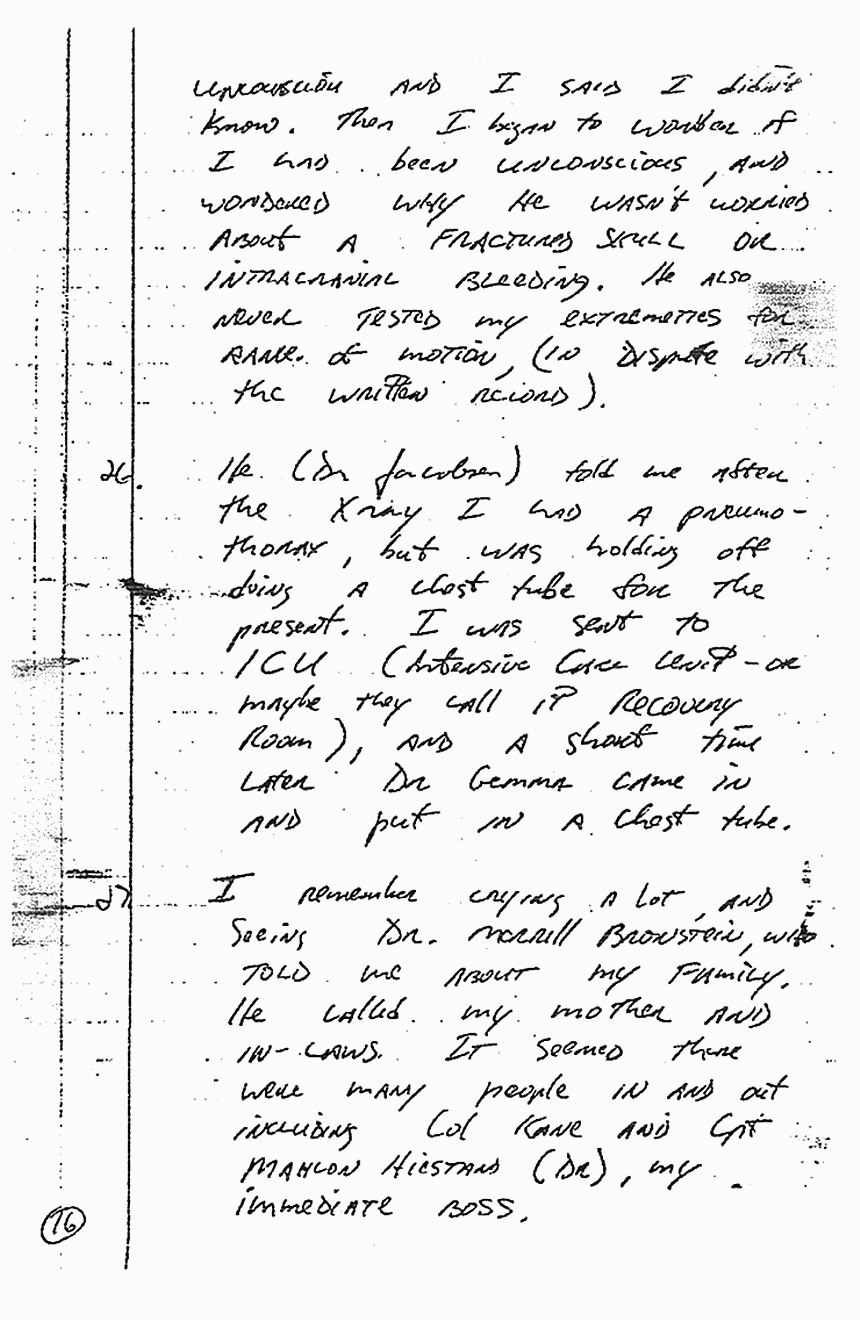 unconscious AND I SAID I didn't
know. Then I began to wonder if
I had been unconscious, AND
WONDERED WHY He WASN'T WORRIED
About A FRACTURED SKULL OR
INTRACRANIAL BLEEDING. He ALSO
NEVER TESTED my extremeties for
RANGE of motion, (IN Dispute with
the written record).
26. He (Dr Jacobsen) told me After
the Xray I HAD A pneumo-
thorax, but WAS holding off
doing A chest tube for the
present. I was sent to
ICU (Intensive Care Unit - or
maybe they call it Recovery
Room), AND A short time
LATER Dr Gemma CAME in
AND put IN A chest tube.
27 I remember crying A Lot, AND
Seeing Dr. Merrill Bronstein, who
TOLD me ABOUT my FAMILY.
He called my mother AND
IN-LAWS. IT Seemed there
were MANY people IN AND out
including Col KANE AND Cpt
MAHLON HIESTAND (DR), my
immediate BOSS.
16